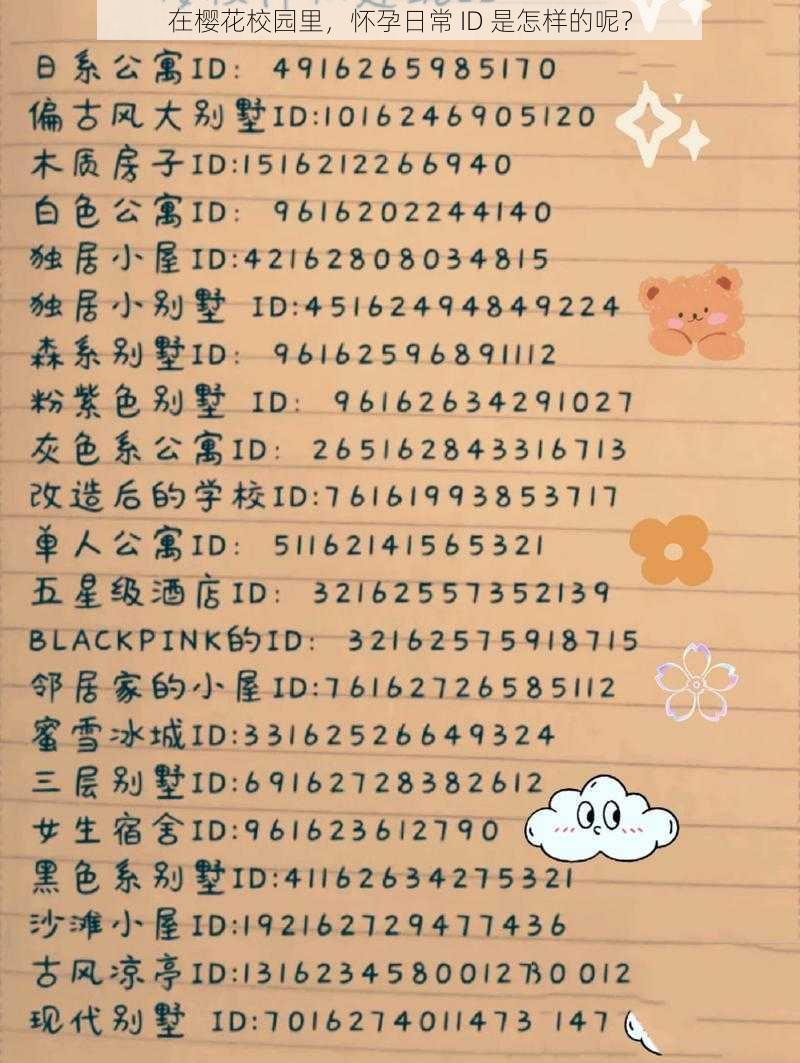 在樱花校园里，怀孕日常 ID 是怎样的呢？
日系公寓ID: 4916265985170
偏古风大别墅ID:1016246905120
木质房子ID:1516212266940
白色公寓ID: 9616202244140
独居小屋ID:42162808034815
独居小别墅 ID:45162494849224
森系别墅ID: 96162596891112
粉紫色别墅 ID: 96162634291027
灰色系公寓ID: 265162843316713
改造后的学校ID:76161993853717
单人公寓ID: 51162141565321
五星级酒店ID: 32162557352139
BLACKPINK的ID: 32162575918715
邻居家的小屋ID:76162726585112
蜜雪冰城ID:33162526649324
三层别墅ID:69162728382612
女生宿舍ID:961623612790
黑色系别墅ID:41162634275321
沙滩小屋ID:192162729477436
古风凉亭ID:1316234580012730 012
现代别墅 ID:7016274011473 147